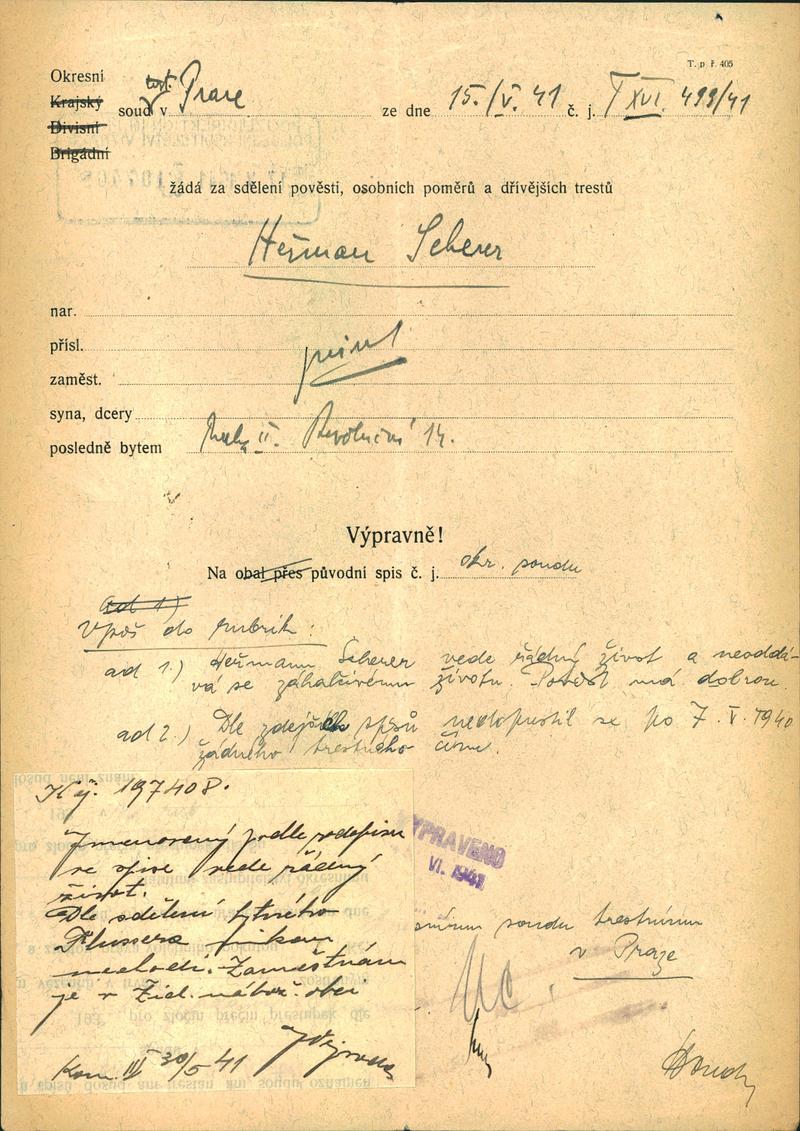 T. p. ř. 405
Okresní
Krajský
Divisní
Brigádní
trest. soud v Praze ze dne 15./V. 41 č. j. T XVI. 499/41
žádá za sdělení pověsti, osobních poměrů a dřívějších trestů
Heřman Scherer
nar.
přísl.
zaměst.
syna, dcery
posledně bytem Praha II. Revoluční 14.
Výpravně!
Na obal přes původní spis č. j. okr. soudu
ad 1)
Vpiš do rubrik:
ad 1.) Heřmann Scherer vede řádný život a neoddá-
vá se záhalčivému životu. Pověst má dobrou.
ad 2.) Dle zdejších spisů nedopustil se po 7. V. 1940
žádného trestného činu.
K čj. 197408.
Jmenovaný podle podpisu
ve spise vede řádný
život.
Dle sdělení bytného
Flussera nikam
nechodí. Zaměstnán
je v žid. nábož. obci
Kom. IV 30/5 41
VYPRAVENO
VI. 1941
soudu trestnímu
v Praze